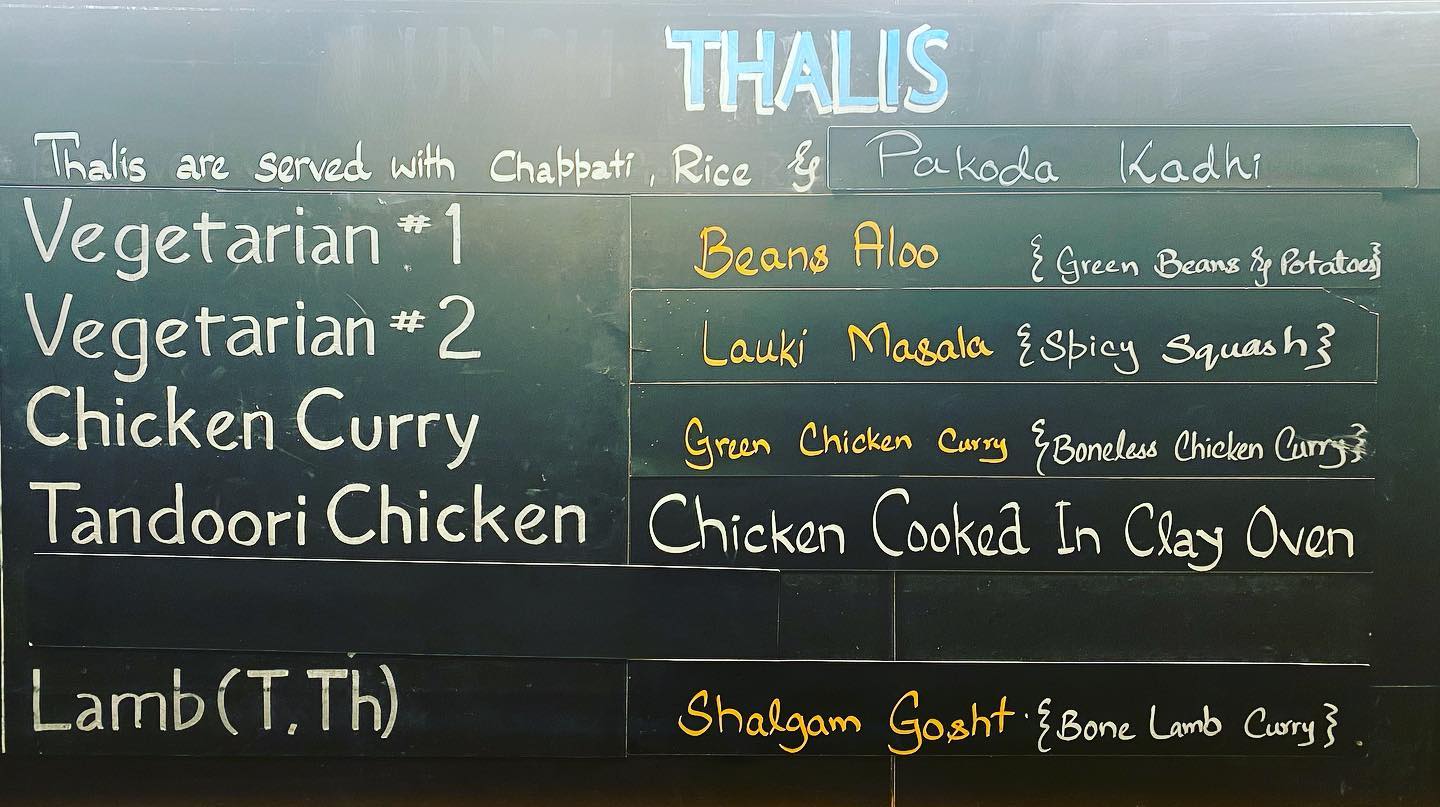 THALIS
Thalis are served with Chappati, Rice & Pakoda Kadhi
Vegetarian #1 Beans Aloo {Green Beans & Potatoes}
Vegetarian #2 Lauki Masala {Spicy Squash}
Chicken Curry Green Chicken Curry {Boneless Chicken Curry}
Tandoori Chicken Chicken Cooked In Clay Oven
Lamb (T, Th) Shalgam Gosht {Bone Lamb Curry}